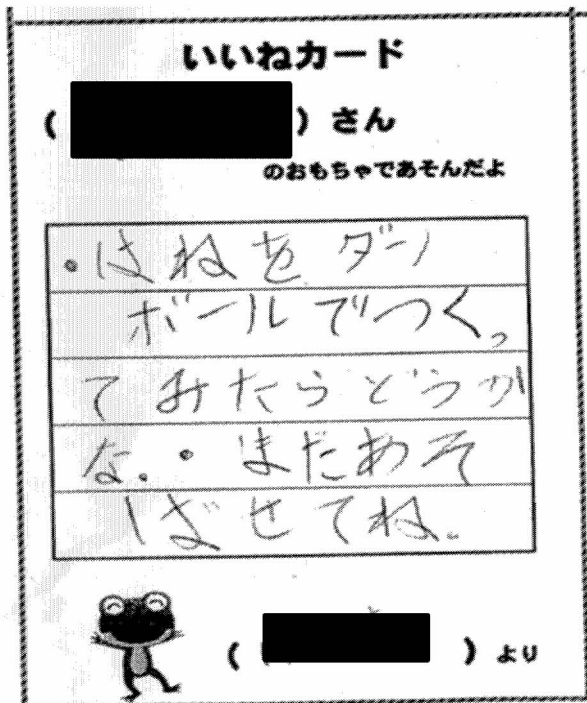 いいねカード
( ) さん
のおもちゃであそんだよ
・はねをダン
ボールでつくっ
てみたらどうか
な。・またあそ
ばせてね。
( ) より